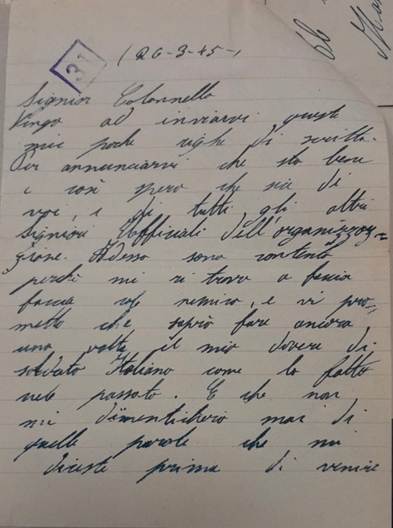 31
(26-3-45-)
Signior Colonnello
Vengo ad inviarvi queste
mie poche righe di scritto.
Per annunciarvi che sto bene
e così spero che sia di
voi, e di tutti gli altri
Signiori Lofficiali dell'organizzaz=
zione. Adesso sono contento
perché mi ri trovo a faccia
faccia col nemico, e vi prom=
metto che saprò fare ancora
una volta il mio dovere di
soldato Italiano come lo fatto
nel passato. E che non
mi dimenticherò mai di
quelle parole che mi
diceste prima di venire